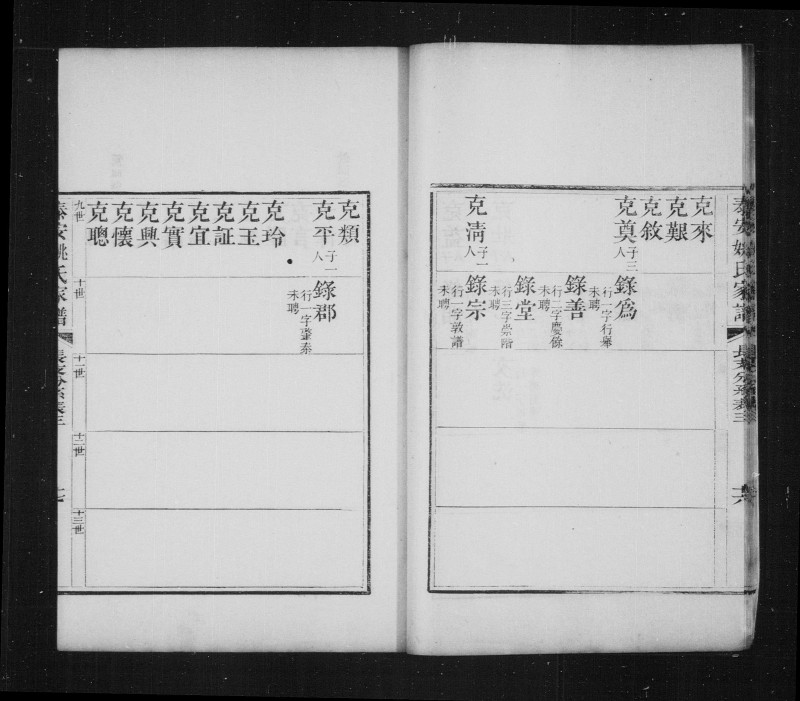 泰安姚氏家譜
長支分系表三
十六
克來
克艱
克敘
克奠
子三人
錄為
行一字行舉
未聘
錄善
行二字慶餘
未聘
錄堂
行三字崇階
未聘
克清
子一人
錄宗
行一字敦譜
未聘
克類
克平
子一人
錄郡
行一字肇泰
未聘
克玲
克玉
克証
克宜
克實
克興
克懷
克聰
九世
十世
十一世
十二世
十三世
泰安姚氏家譜
長支分系表三
十七